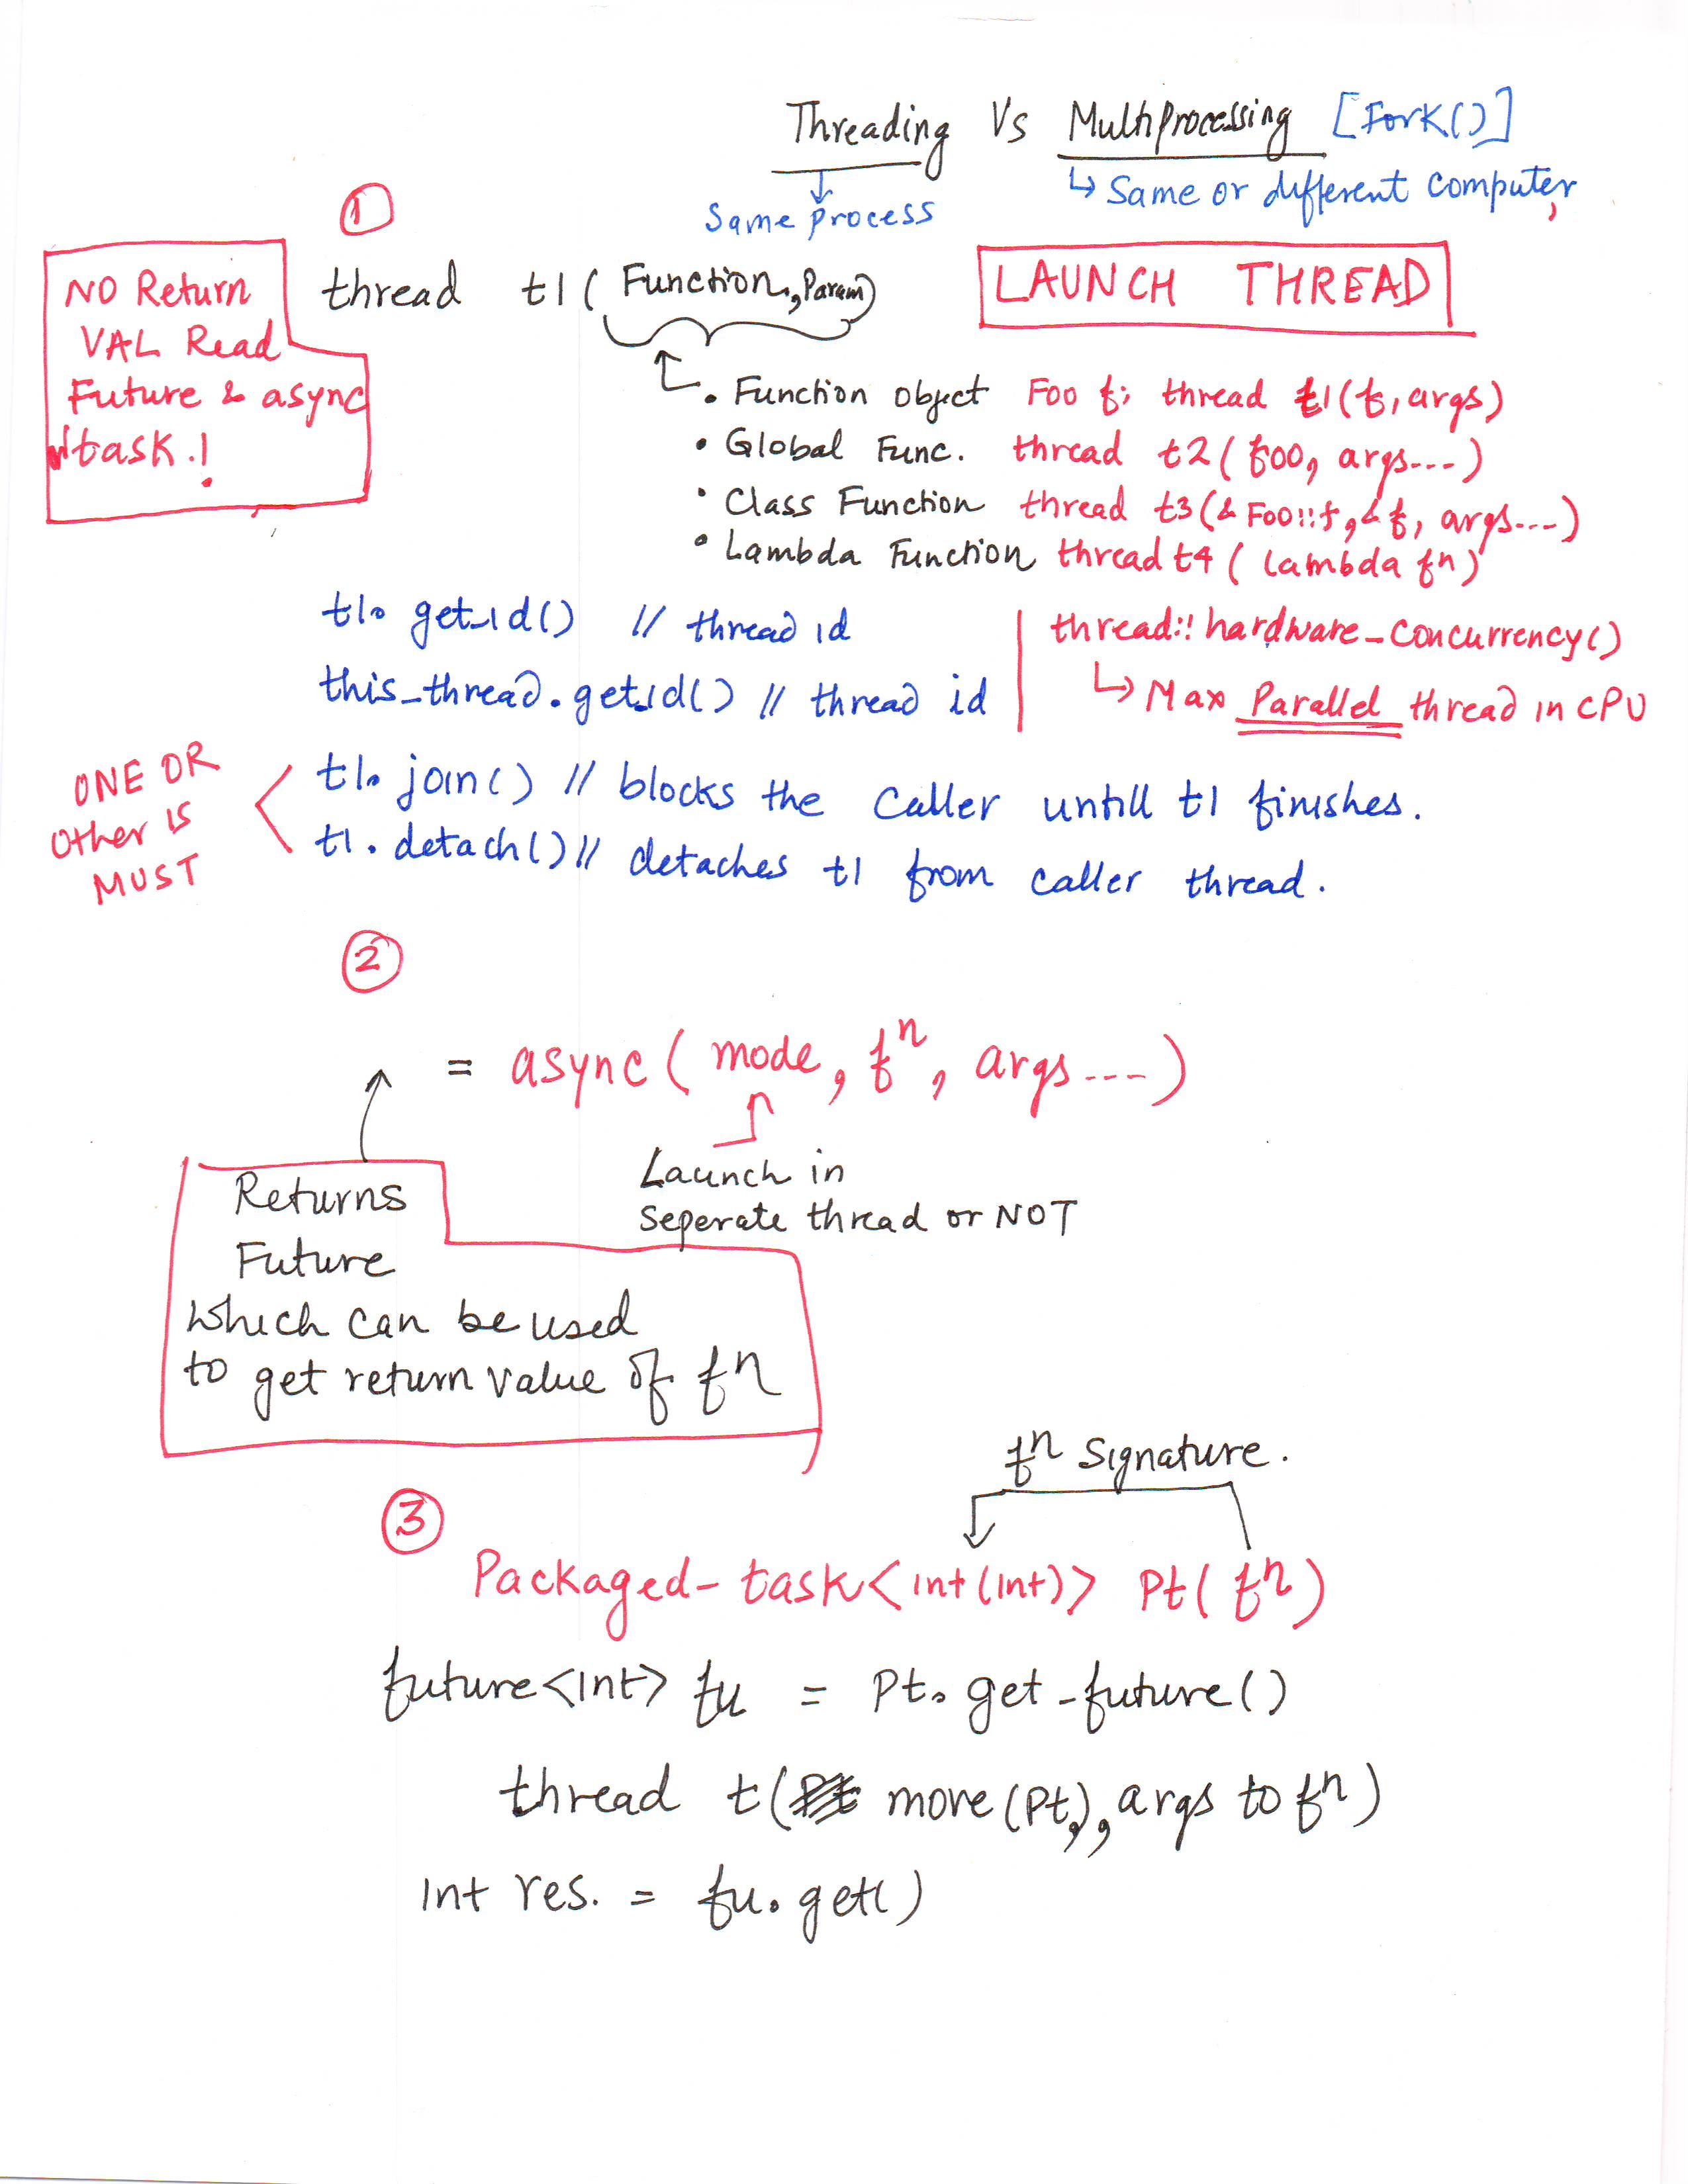 Threading Vs Multiprocessing [Fork()]
Same process
↳ Same or different computer,
①
NO Return
VAL Read
Future & async
task.!
thread t1( Function, Param)
LAUNCH THREAD
• Function object Foo f; thread t1(f, args)
• Global Func. thread t2(foo, args...)
• Class Function thread t3(& Foo::f, & f, args...)
• Lambda Function thread t4 ( lambda fn)
t1. get_id() // thread id
this_thread.get_id() // thread id
thread::hardware_concurrency()
↳ Max Parallel thread in CPU
ONE OR
other is
MUST
t1. join() // blocks the caller untill t1 finishes.
t1. detach() // detaches t1 from caller thread.
②
= async( mode, fn, args...)
Launch in
Seperate thread or NOT
Returns
Future
which can be used
to get return value of fn
fn signature.
③
Packaged_task<int(int)> Pt( fn)
future<int> fu = Pt. get_future()
thread t( move(Pt), args to fn)
int res. = fu. get()